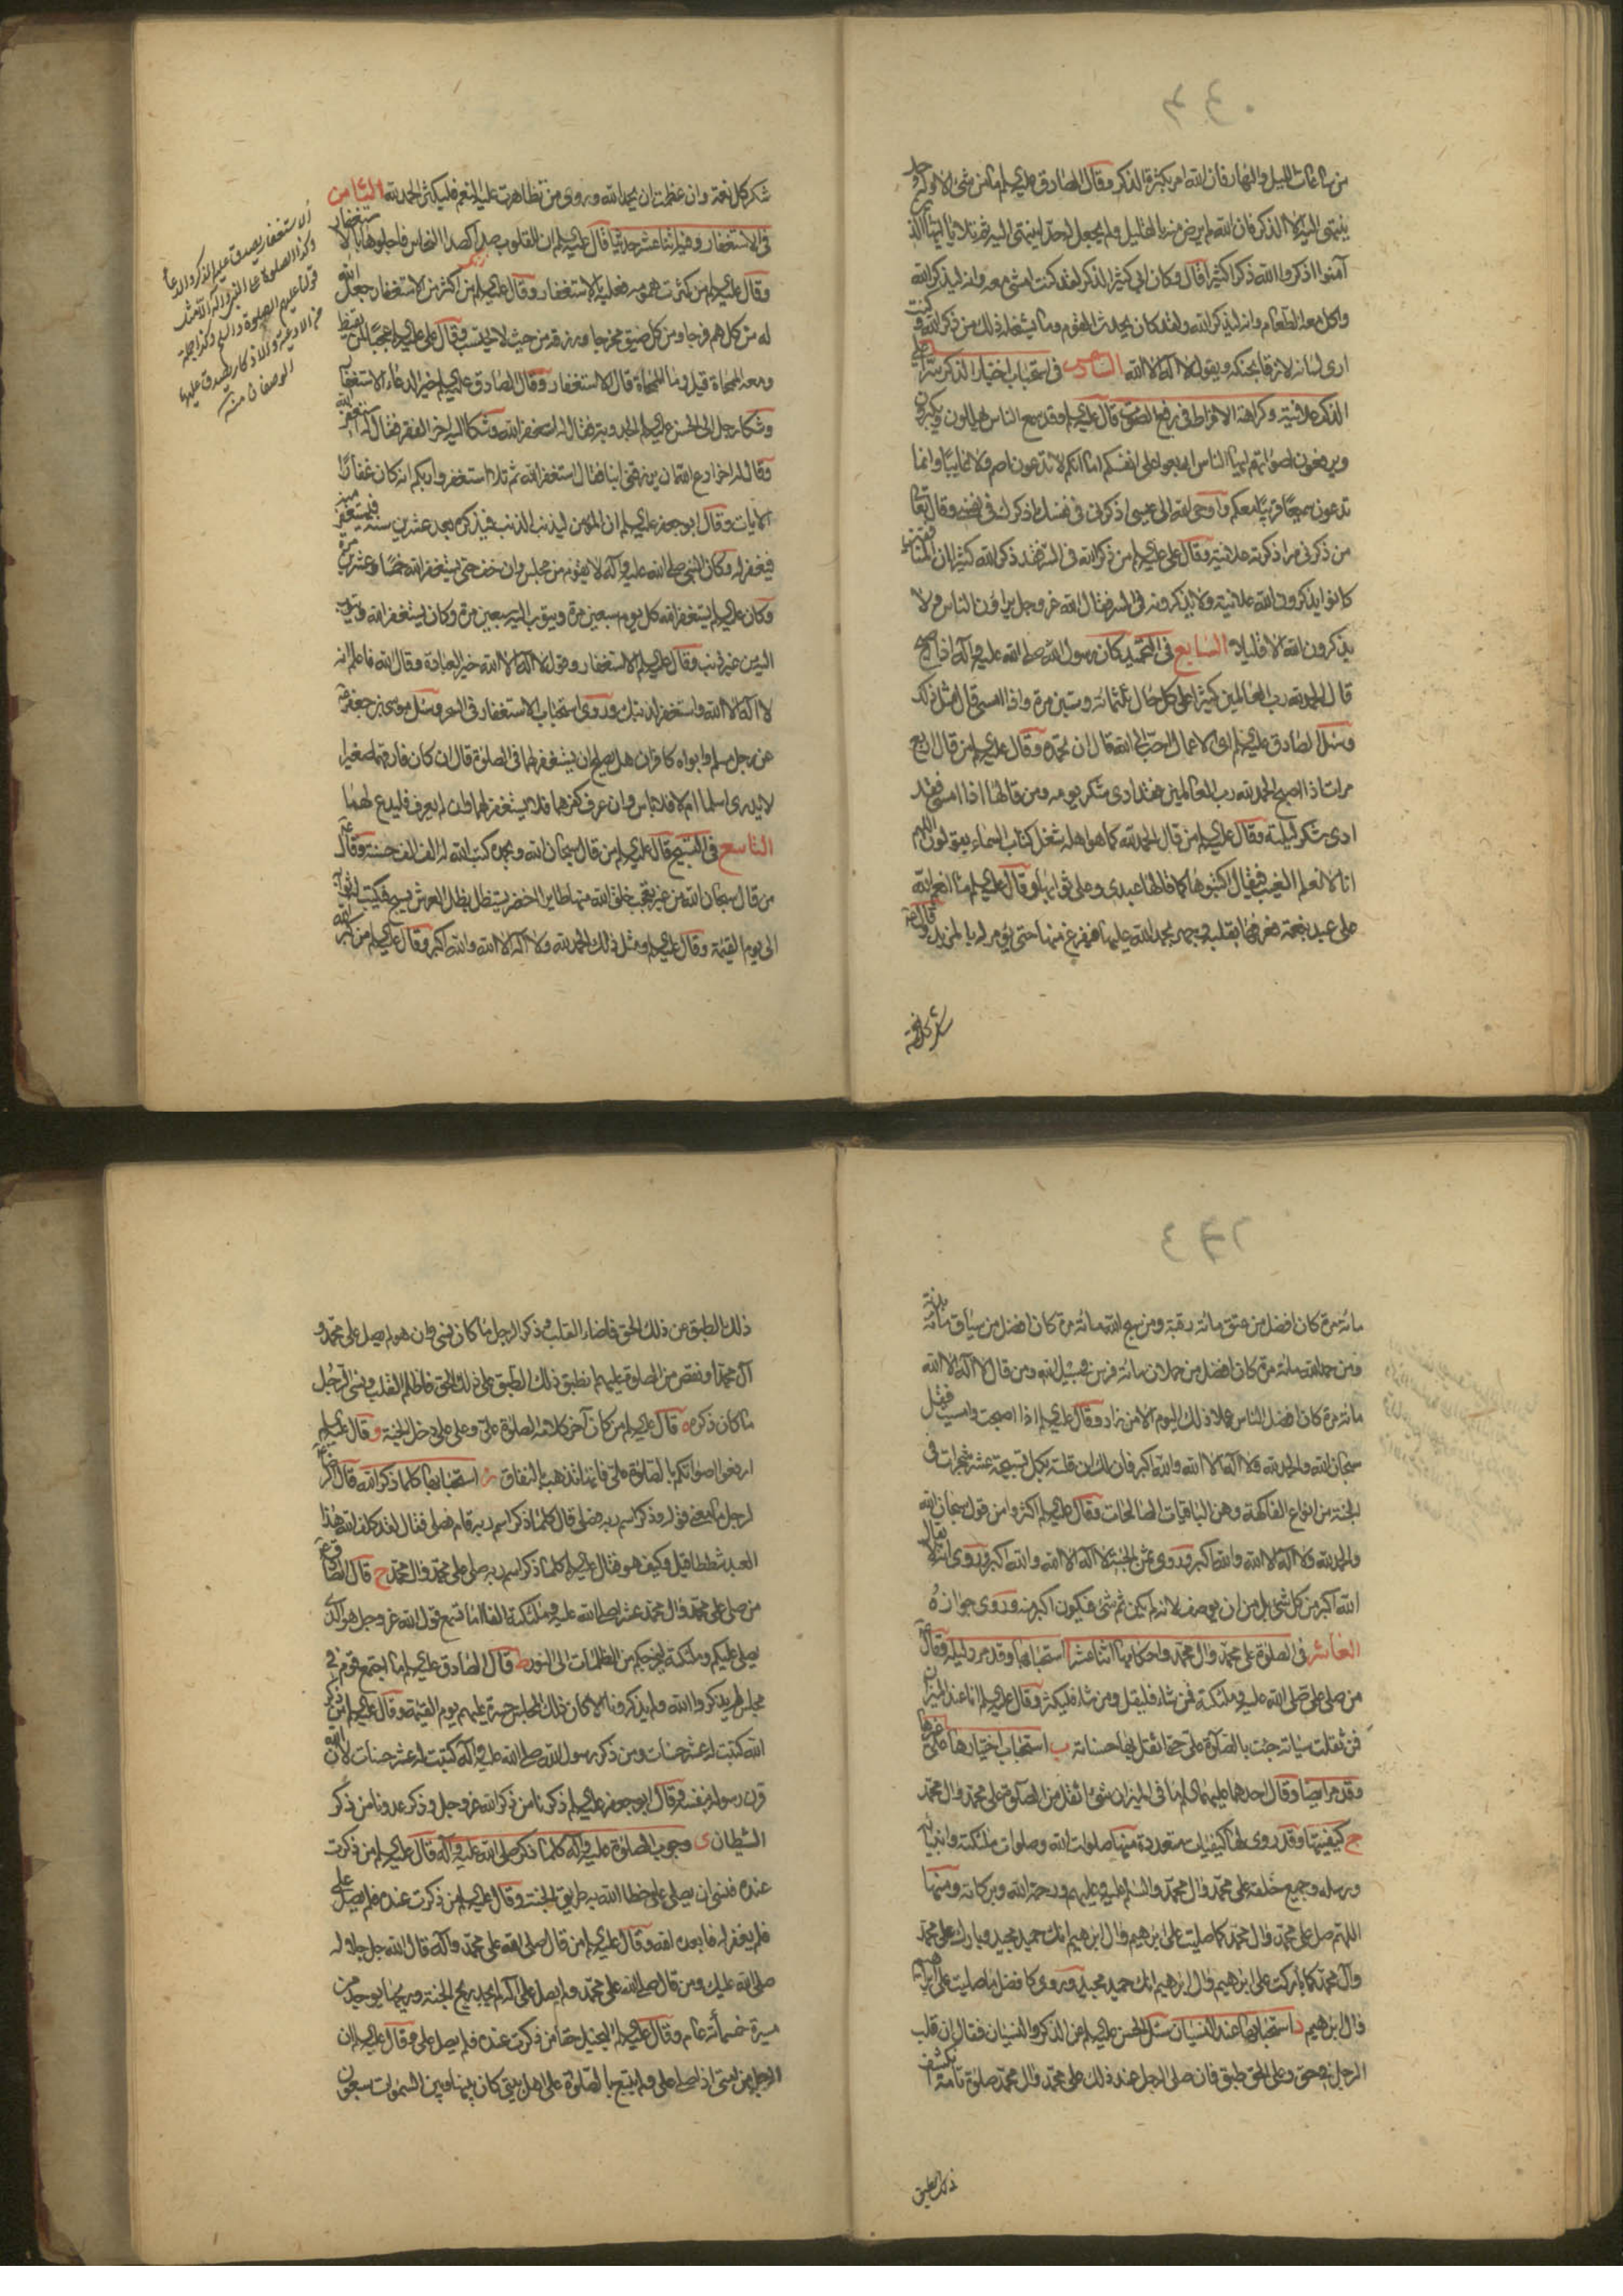 من ساعات الليل والنهار فان الله امر بكثرة الذكر وقال الصادق عليه السلام ما من شيء الا وله حد
ينتهى اليه الا الذكر فان الله لم يرض منه بالقليل ولم يجعل له حدا ينتهى اليه ثم تلا يا ايها الذين
آمنوا اذكروا الله ذكرا كثيرا قال وكان ابي كثير الذكر لقد كنت امشي معه وانه ليذكر الله
واكل معه الطعام وانه ليذكر الله ولقد كان يحدث القوم وما يشغله ذلك عن ذكر الله وكنت
ارى لسانه لازقا بحنكه ويقول لا اله الا الله السادس في استحباب اختيار الذكر سرا على
الذكر علانية وكراهة الافراط في رفع الصوت قال عليه السلام وقد سمع الناس يهللون ويكبرون
ويرفعون اصواتهم ايها الناس اربعوا على انفسكم اما انكم لا تدعون اصم ولا غائبا وانما
تدعون سميعا قريبا معكم واوحى الله الى عيسى اذكرني في نفسك اذكرك في نفسي وقال تعالى
من ذكرني سرا ذكرته علانية وقال علي عليه السلام من ذكر الله في السر فقد ذكر الله كثيرا ان المنافقين
كانوا يذكرون الله علانية ولا يذكرونه في السر فقال الله عز وجل يراؤن الناس ولا
يذكرون الله الا قليلا السابع في التحميد كان رسول الله صلى الله عليه وآله اذا اصبح
قال الحمد لله رب العالمين كثيرا على كل حال ثلثمائه وستين مرة واذا امسى قال مثل ذلك
وسئل الصادق عليه السلام اى الاعمال احب الى الله قال ان تحمده وقال عليه السلام من قال اربع
مرات اذا اصبح الحمد لله رب العالمين فقد ادى شكر يومه ومن قالها اذا امسى فقد
ادى شكر ليلته وقال عليه السلام من قال الحمد لله كما هو اهله شغل كتاب السماء يقولون اللهم
انا لا نعلم الغيب فيقال اكتبوها كما قالها عبدى وعلى ثوابها وقال عليه السلام ما انعم الله
على عبد بنعمة فعرفها بقلبه وحمد الله عليها ففرغ منها حتى يؤمر له بالمزيد وقال
شكر كل نعمة
شكر كل نعمة وان عظمت ان يحمد الله وروى من تظاهرت عليه النعم فليكثر الحمد لله الثامن
في الاستغفار وفيه اثنا عشر حديثا قال عليه السلام ان للقلوب صدا كصدا النحاس فاجلوها بالاستغفار
وقال عليه السلام من كثرت همومه فعليه بالاستغفار وقال عليه السلام من اكثر من الاستغفار جعل الله
له من كل هم فرجا ومن كل ضيق مخرجا ورزقه من حيث لا يحتسب وقال علي عليه السلام عجبا لمن يقنط
ومعه المحاة قيل وما المحاة قال الاستغفار وقال الصادق عليه السلام خير الدعاء الاستغفار
وشكا رجل الى الحسن عليه السلام الجدوبة فقال له استغفر الله وشكا اليه اخر الفقر فقال له استغفر الله
وقال له اخر ادع الله ان يرزقني ابنا فقال استغفر الله ثم تلا استغفروا ربكم انه كان غفارا
الايات وقال ابو جعفر عليه السلام ان المؤمن ليذنب الذنب فيذكره بعد عشرين سنة فيستغفر منه
فيغفر له وكان النبي صلى الله عليه وآله لا يقوم من مجلس وان خف حتى يستغفر الله خمسا وعشرين مرة
وكان عليه السلام يستغفر الله كل يوم سبعين مرة ويتوب اليه سبعين مرة وكان يستغفر الله ويتوب
اليه من غير ذنب وقال عليه السلام الاستغفار وقول لا اله الا الله خير العبادة وقال الله فاعلم انه
لا اله الا الله واستغفر لذنبك وروى استحباب الاستغفار في السحر وسئل موسى بن جعفر
عن رجل مسلم وابواه كافران هل يصلح ان يستغفر لهما في الصلوة قال ان كان فارقهما صغيرا
لا يدرى اسلما ام لا فلا باس وان عرف كفرهما فلا يستغفر لهما وان لم يعرف فليدع لهما
التاسع في التسبيح قال عليه السلام من قال سبحان الله وبحمده كتب الله له الف الف حسنة وقال
من قال سبحان الله من غير تعجب خلق الله منها طايرا اخضر يستظل بظل العرش يسبح فيكتب له ثوابه
الى يوم القيمة وقال عليه السلام ومثل ذلك الحمد لله ولا اله الا الله والله اكبر وقال عليه السلام من كبر الله
الاستغفار يصدق عليه الذكر والدعاء
وكذا الصلوة على النبي وآله
مائة مرة كان افضل من عتق مائة رقبة ومن سبح الله مائة مرة كان افضل من سياق مائة بدنة
ومن حمد الله مائة مرة كان افضل من حملان مائة فرس في سبيل الله ومن قال لا اله الا الله
مائة مرة كان افضل الناس عملا ذلك اليوم الا من زاد وقال عليه السلام اذا اصبحت وامسيت فقل
سبحان الله والحمد لله ولا اله الا الله والله اكبر فان لك ان قلته بكل تسبيحة عشر شجرات في
الجنة من انواع الفاكهة وهن الباقيات الصالحات وقال عليه السلام اكثروا من قول سبحان الله
والحمد لله ولا اله الا الله والله اكبر وروى ثمن الجنة لا اله الا الله والله اكبر وروى انه لا يقال
الله اكبر من كل شئ بل من ان يوصف لانه لم يكن ثم شئ فيكون اكبر منه وروى جوازه
العاشر في الصلوة على محمد وال محمد واحكامها اثنا عشر ا استحبابها وقد مر دليله وقال
من صلى علي صلى الله عليه وملئكته فمن شاء فليقل ومن شاء فليكثر وقال عليه السلام انا عند الميزان
فمن ثقلت سيئاته جئت بالصلوة علي حتى اثقل بها حسناته ب استحباب اختيارها على غيرها
وقد مر ايضا وقال احدهما عليهما السلام ما في الميزان شئ اثقل من الصلوة على محمد وال محمد
ج كيفيتها وقد روى لها كيفيات متعددة منها صلوات الله وصلوات ملئكته وانبيائه
ورسله وجميع خلقه على محمد وال محمد والسلم عليه وعليهم ورحمة الله وبركاته ومنها
اللهم صل على محمد وال محمد كما صليت على ابرهيم وال ابرهيم انك حميد مجيد وبارك على محمد
وآل محمد كما باركت على ابرهيم وال ابرهيم انك حميد مجيد وروى كافضل ما صليت على ابراهيم
وال ابرهيم د استحبابها عند النسيان سئل الحسن عليه السلام عن الذكر والنسيان فقال ان قلب
الرجل في حق وعلى الحق طبق فان صلى الرجل عند ذلك على محمد وال محمد صلوة تامة انكشف
ذلك الطبق
ذلك الطبق عن ذلك الحق فاضاء القلب وذكر الرجل ما كان نسي وان هو لم يصل على محمد و
آل محمد او نقص من الصلوة عليهم انطبق ذلك الطبق على ذلك الحق فاظلم القلب ونسي الرجل
ما كان ذكره ه قال عليه السلام من كان آخر كلامه الصلوة علي وعلى علي دخل الجنة و قال عليه السلام
ارفعوا اصواتكم بالصلوة علي فانها تذهب بالنفاق ز استحبابها كلما ذكر الله قال
لرجل ما معنى قوله وذكر اسم ربه فصلى قال كلما ذكر اسم ربه قام فصلى فقال لقد كلف الله هذا
العبد شططا قيل وكيف هو فقال عليه السلام كلما ذكر اسم ربه صلى على محمد وال محمد ح قال الصادق
من صلى على محمد وال محمد عشرا صلى الله عليه وملئكته الفا اما تسمع قول الله عز وجل هو الذى
يصلى عليكم وملئكته ليخرجكم من الظلمات الى النور ط قال الصادق عليه السلام ما اجتمع قوم في
مجلس لم يذكروا الله ولم يذكرونا الا كان ذلك المجلس حسرة عليهم يوم القيمة وقال عليه السلام من ذكر
الله كتبت له عشر حسنات ومن ذكر رسول الله صلى الله عليه وآله كتبت له عشر حسنات لان الله
قرن رسوله بنفسه وقال ابو جعفر عليه السلام ذكرنا من ذكر الله عز وجل وذكر عدونا من ذكر
الشيطان ى وجوب الصلوة عليه وآله كلما ذكر صلى الله عليه وآله قال عليه السلام من ذكرت
عنده فنسى ان يصلى علي خطا الله به طريق الجنة وقال عليه السلام من ذكرت عنده فلم يصل علي
فلم يغفر له فابعده الله وقال عليه السلام من قال صلى الله على محمد وآله قال الله جل جلاله
صلى الله عليك ومن قال صلى الله على محمد ولم يصل على آله لم يجد ريح الجنة وريحها يوجد من
مسيرة خمسمائة عام وقال عليه السلام البخيل حقا من ذكرت عنده فلم يصل علي وقال عليه السلام ان
الرجل من امتى اذا صلى علي ولم يتبع بالصلوة على اهل بيتي كان بينها وبين السموات سبعون